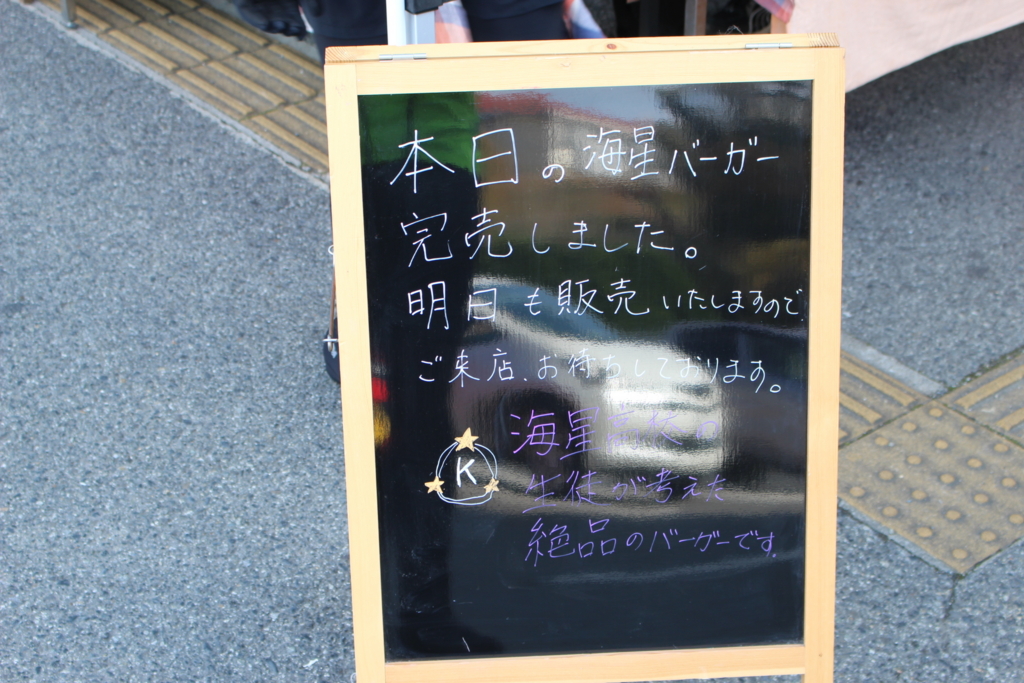 本日の海星バーガー
完売しました。
明日も販売いたしますので
ご来店、お待ちしております。
海星高校の
K
生徒が考えた
絶品のバーガーです。